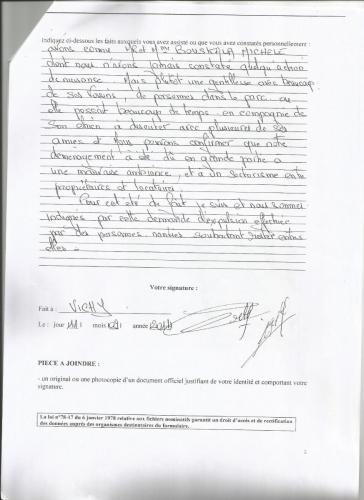 Indiquez ci-dessous les faits auxquels vous avez assisté ou que vous avez constatés personnellement :
avons connu Mr et Mme BOUSKILA MICHELE
dont nous n'avons jamais constaté quelqu'action
de nuisance. Mais plutôt une gentillesse avec beaucoup
de ses voisins de personnes dans le parc ou
elle passait beaucoup de temps en compagnie de
son chien a discuter avec plusieures de ses
amies et nous pouvons confirmer que notre
déménagement à été dû en grande partie a
une mauvaise ambiance, et a un sectarisme entre
propriétaires et locataires.
Pour cet été de fait je suis et nous sommes
indignés par cette demande d'expulsion effectuée
par des personnes nanties souhaitant
elles.
Votre signature :
Fait à : VICHY
Le : jour mois année
PIECE A JOINDRE :
- un original ou une photocopie d'un document officiel justifiant de votre identité et comportant votre
signature.
La loi n°78-17 du 6 janvier 1978 relative aux fichiers nominatifs garantit un droit d'accès et de rectification
des données auprès des organismes destinataires du formulaire.
2